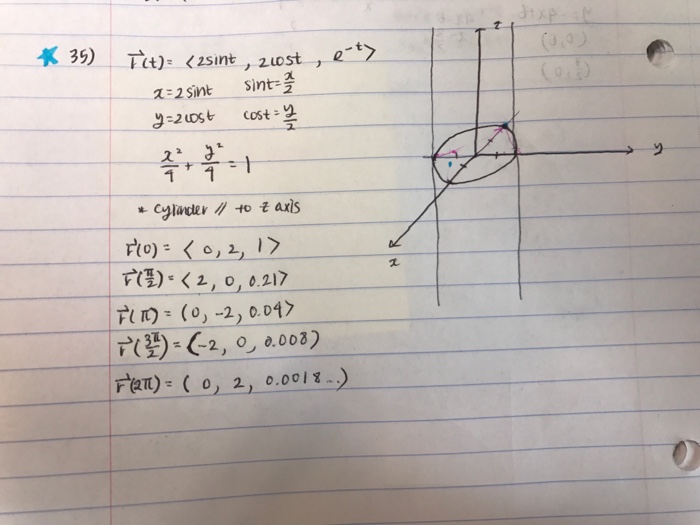 35) r⃗(t) = <2sint, 2cost, e^-t>
x = 2sint sint = x/2
y = 2cost cost = y/2
x²/4 + y²/4 = 1
* cylinder // to z axis
r⃗(0) = <0, 2, 1>
r⃗(π/2) = <2, 0, 0.21>
r⃗(π) = (0, -2, 0.04>
r⃗(3π/2) = (-2, 0, 0.008)
r⃗(2π) = (0, 2, 0.0018...)
z
y
x